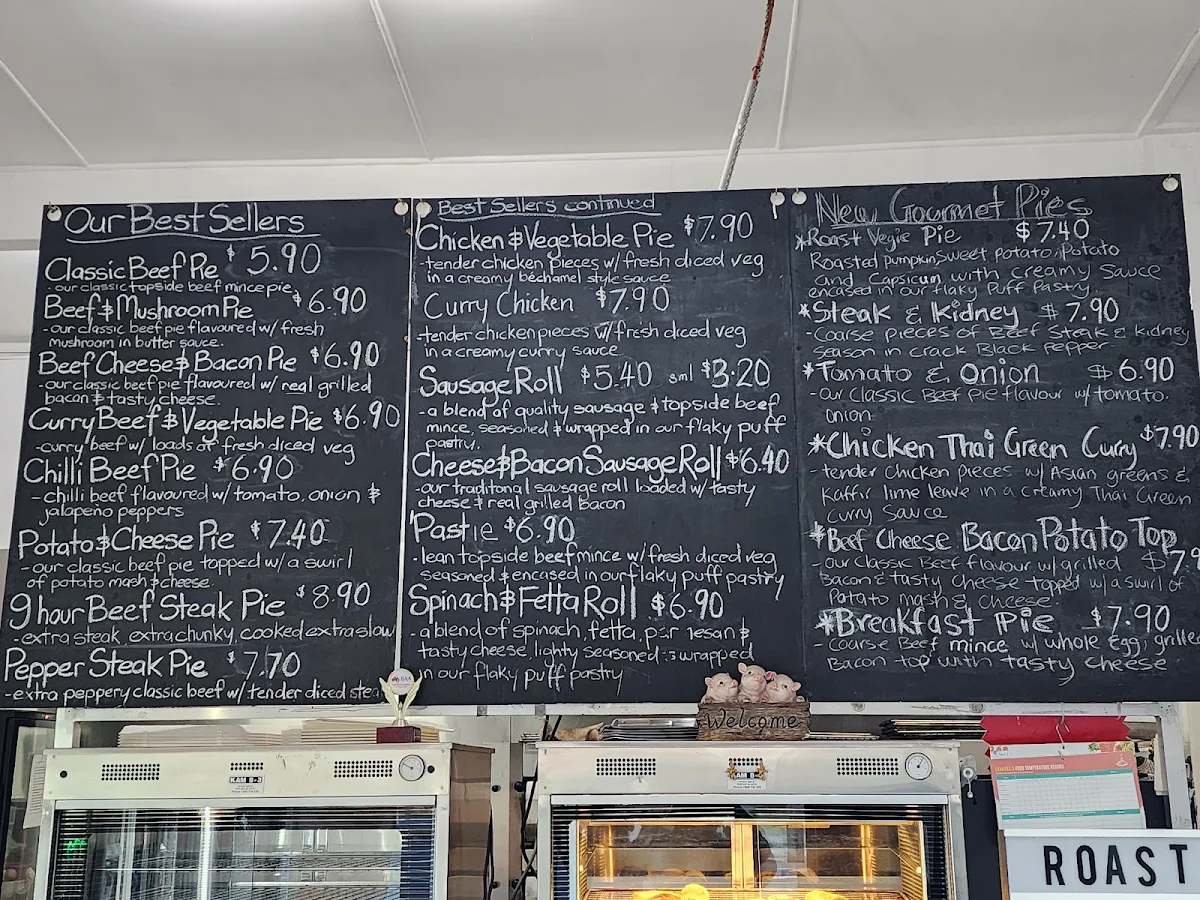 Our Best Sellers
Classic Beef Pie $5.90
- our classic topside beef mince pie
Beef & Mushroom Pie $6.90
- our classic beef pie flavoured w/ fresh
mushroom in butter sauce.
Beef Cheese & Bacon Pie $6.90
- our classic beef pie flavoured w/ real grilled
bacon & tasty cheese.
Curry Beef & Vegetable Pie $6.90
- curry beef w/ loads of fresh diced veg
Chilli Beef Pie $6.90
- chilli beef flavoured w/ tomato, onion &
jalapeño peppers
Potato & Cheese Pie $7.40
- our classic beef pie topped w/ a swirl
of potato mash & cheese.
9 hour Beef Steak Pie $8.90
- extra steak, extra chunky, cooked extra slow
Pepper Steak Pie $7.70
- extra peppery classic beef w/ tender diced stea
Best Sellers continued
Chicken & Vegetable Pie $7.90
- tender chicken pieces w/ fresh diced veg
in a creamy béchamel style sauce
Curry Chicken $7.90
- tender chicken pieces w/ fresh diced veg
in a creamy curry sauce
Sausage Roll $5.40 sml $3.20
- a blend of quality sausage & topside beef
mince, seasoned & wrapped in our flaky puff
pastry.
Cheese & Bacon Sausage Roll $6.40
- our traditonal sausage roll loaded w/ tasty
cheese & real grilled bacon
Pastie $6.90
- lean topside beef mince w/ fresh diced veg
seasoned & encased in our flaky puff pastry
Spinach & Fetta Roll $6.90
- a blend of spinach, fetta, par esan &
tasty cheese, lighty seasoned & wrapped
in our flaky puff pastry
New Gourmet Pies
*Roast Vegie Pie $7.40
Roasted pumpkin sweet potato, Potato
and Capsicum with creamy sauce
encased in our flaky Puff Pastry.
*Steak & Kidney $7.90
- Coarse pieces of Beef Steak & Kidney
season in crack Black Pepper
*Tomato & Onion $6.90
- our classic Beef Pie flavour w/ tomato.
onion.
*Chicken Thai Green Curry $7.90
- tender chicken pieces w/ Asian greens &
Kaffir lime leave in a creamy Thai Green
curry sauce
*Beef Cheese Bacon Potato Top
$7.9
- our classic Beef flavour w/ grilled
Bacon & tasty cheese topped w/ a swirl of
Potato mash & cheese.
*Breakfast Pie $7.90
- Coarse Beef mince w/ whole egg, grille
Bacon top with tasty cheese
Welcome
ROAST